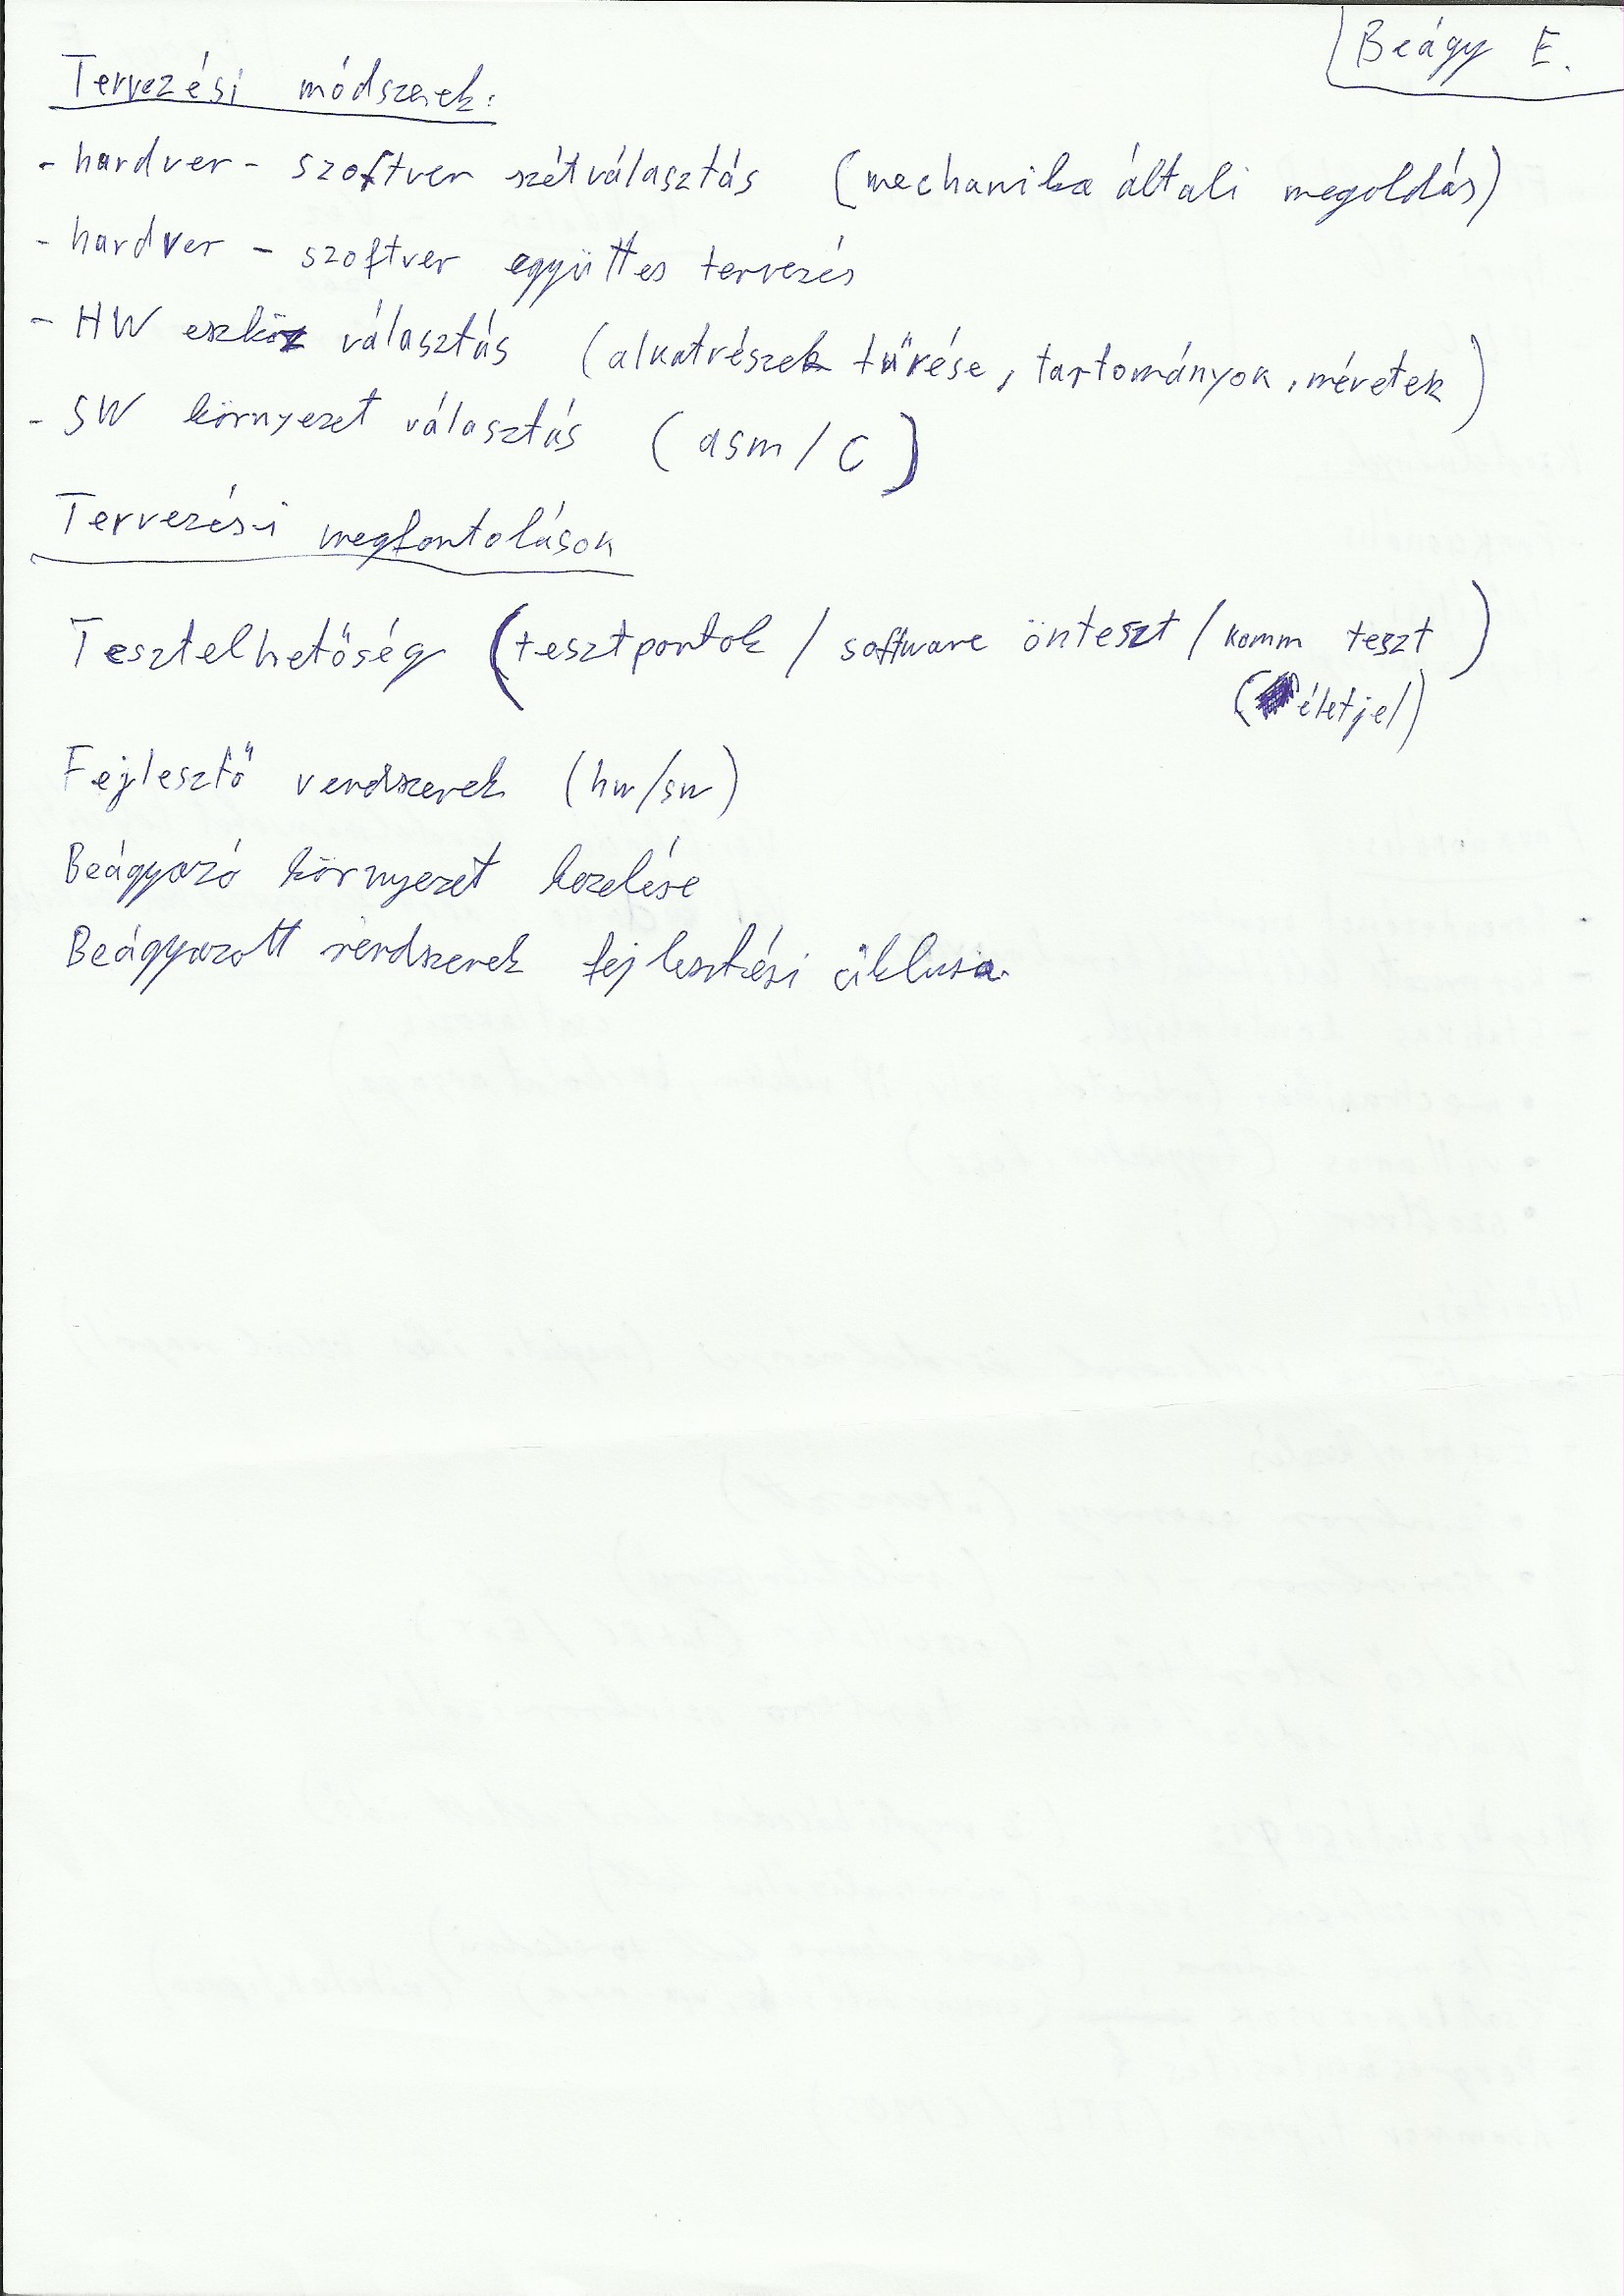 Beágy E.
Tervezési módszerek:
- hardver - szoftver szétválasztás (mechanika általi megoldás)
- hardver - szoftver együttes tervezés
- HW eszköz választás (alkatrészek tűrése, tartományok, méretek)
- SW környezet választás (asm / C)
Tervezési megfontolások
Tesztelhetőség (tesztpontok / software önteszt / komm teszt)
(életjel)
Fejlesztő rendszerek (hw/sw)
Beágyazó környezet kezelése
Beágyazott rendszerek fejlesztési ciklusa.